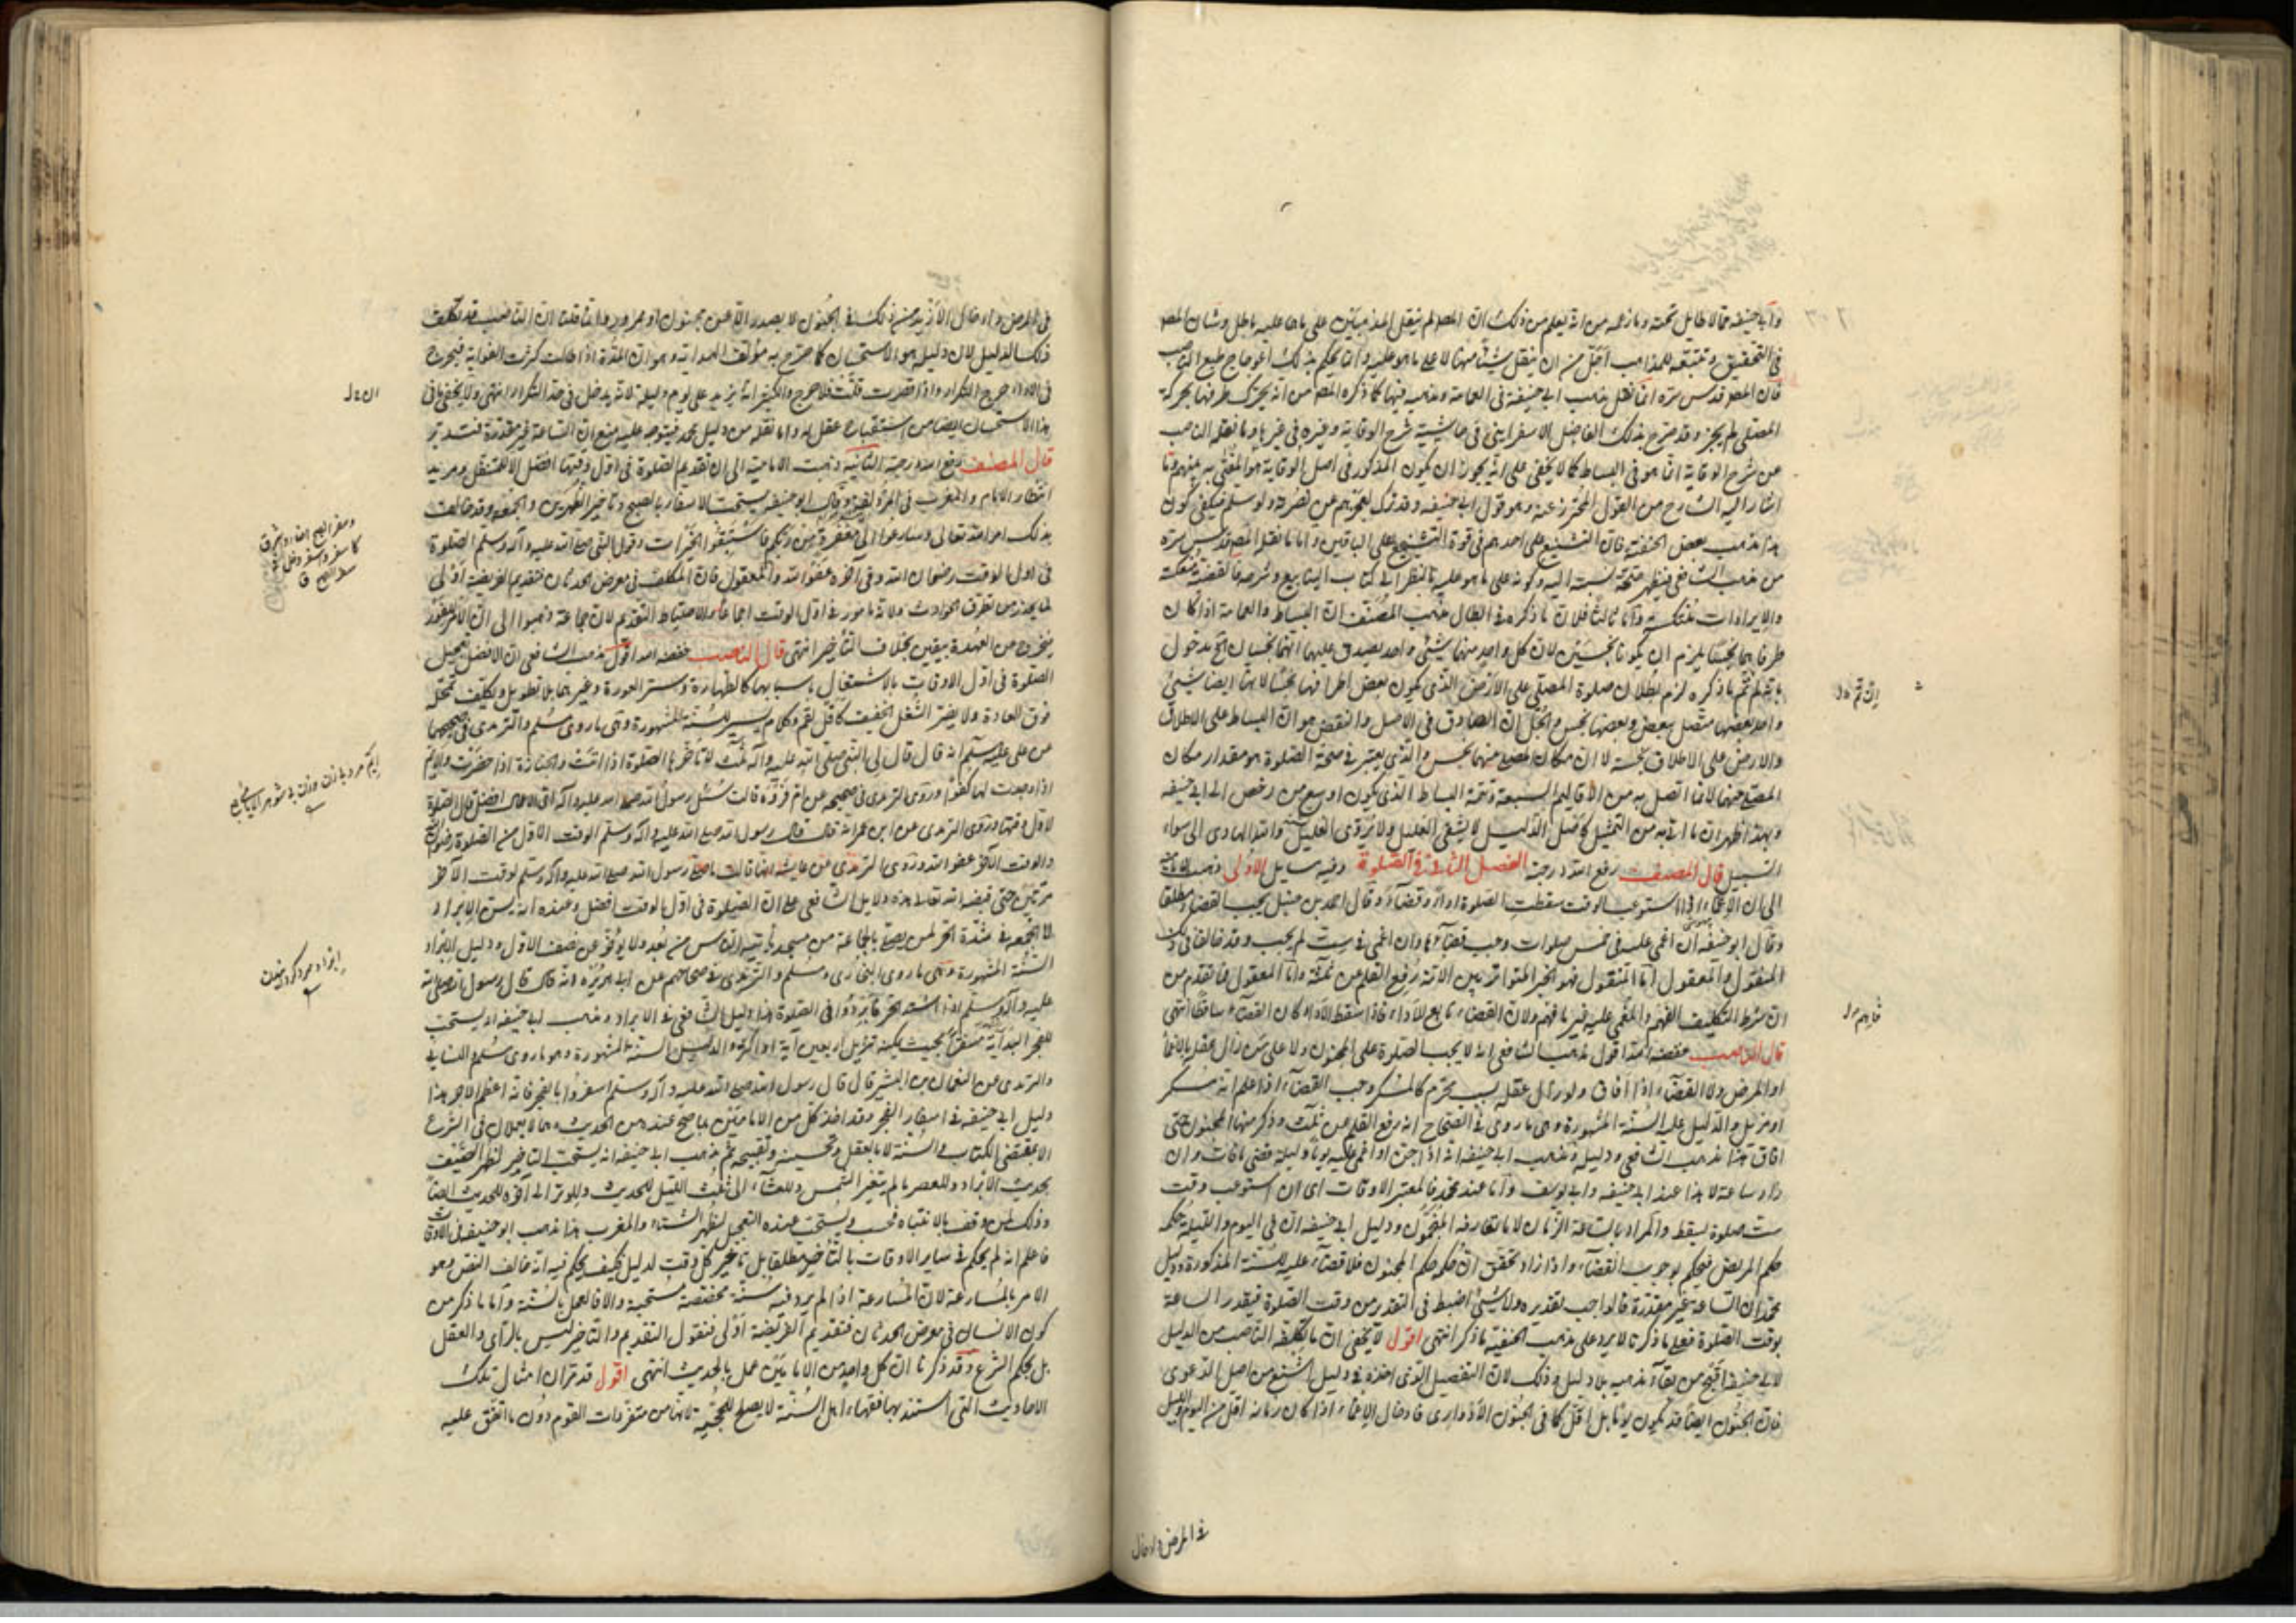 وابي حنيفة مما لا طايل تحته وما زعمه من انه يعلم من ذلك ان المصنف لم ينقل المذهبين على ما هما عليه باطل وشان المصـ
في التحقيق وتتبعه للمذاهب اجل من ان ينقل شيئا منها لا على ما هو عليه وانما يحكم بذلك اعوجاج طبع الناصب
فان المصـ قدس سره انما نقل مذهب ابي حنيفة في العمامة ومذهب فيها كما ذكره المصـ من انه يحرك طرفها بحركة
المصلى لم يجز وقد صرح بذلك الفاضل الاسفرايني في حاشية شرح الوقاية وغيره في غيرها وما نقله الناصب
عن شرح الوقاية انما هو في البساط كما لا يخفى على انه يجوز ان يكون المذكور في اصل الوقاية هو المفتى به بينهم وما
اشار اليه الشارح من القول المحترز عنه وهو قول ابي حنيفة وقد ترك لعجزهم عن نصرته ولو سلم فيكفي كون
هذا مذهب بعض الحنفية فان التشنيع على احدهم في قوة التشنيع على الباقين واما ما نقله المصـ قدس سره
من مذهب الشافعي فيظهر صحة نسبته اليه وكونه على ما هو عليه بالنظر الى كتاب الينابيع وشرحه فالقضية منعكسة
والايرادات منتكسة واما ثالثا فلان ما ذكره في ابطال مذهب المصنف ان البساط والعمامة اذا كان
طرفاهما نجسا يلزم ان يكونا نجسين لان كل واحد منهما شيء واحد يصدق عليهما انهما نجسان الخ مدخول
بانه لو تم ما ذكره لزم بطلان صلوة المصلي على الارض الذي يكون بعض اطرافها نجسا لانها ايضا شيء
واحد بعضها متصل ببعض وبعضها نجس والحل ان الصادق في الاصل والنقض هو ان البساط على الاطلاق
والارض على الاطلاق نجسة لا ان مكان المصلي منهما نجس والذي يعتبر في صحة الصلوة هو مقدار مكان
المصلي منهما لا ما اتصل به من الاقاليم السبعة وتتمة البساط الذي يكون اوسع من رخص ابي حنيفة
وبهذا ظهر ان ما اتى به من التمثيل كاصل الدليل لا يشفي العليل ولا يروى الغليل والله الهادى الى سواء
السبيل قال المصنف رفع الله درجته الفصل الثاني في الصلوة وفيه مسايل الاولى ذهبت الامامية
الى ان الاغماء اذا استوعب الوقت سقطت الصلوة اداء وقضاء وقال احمد بن حنبل يجب القضاء مطلقا
وقال ابو حنيفة ان اغمي عليه في خمس صلوات وجب قضاؤها وان اغمي في ست لم يجب وقد خالفا في ذلك
المنقول والمعقول اما المنقول فهو الخبر المتواتر بين الامة رفع القلم عن ثلثة واما المعقول فما تقدم من
ان شرط التكليف الفهم والمغمى عليه غير فاهم ولان القضاء تابع للاداء فاذا سقط الاداء كان القضاء ساقطا انتهى
قال الناصب خفضه الله اقول مذهب الشافعي انه لا يجب الصلوة على المجنون ولا على من زال عقله بالاغماء
او المرض ولا القضاء اذا افاق ولو زال عقله بسبب محرم كالمسكر وجب القضاء اذا علم انه مسكر
او مزيل والدليل عليه السنة المشهورة وهي ما روى في الصحاح انه رفع القلم عن ثلث وذكر منها المجنون حتى
افاق هذا مذهب الشافعي ودليله ومذهب ابي حنيفة انه اذا جن او اغمي عليه يوما وليلة قضى ما فات وان
زاد ساعة لا هذا عند ابي حنيفة وابي يوسف واما عند محمد فالمعتبر الاوقات اى ان استوعب وقت
ست صلوة يسقط والمراد بالساعة الزمان لا ما تعارفه المنجمون ودليل ابي حنيفة ان في اليوم والليلة حكمه
حكم المريض فيحكم بوجوب القضاء واذا زاد تحقق ان حكمه حكم المجنون فلا قضاء عليه للسنة المذكورة ودليل
محمد ان الساعة غير مقدرة فالواجب تقديره ولا شيء اضبط في التقدير من وقت الصلوة فيقدر الساعة
بوقت الصلوة فعلى ما ذكرنا لا يرد على مذهب الحنفية ما ذكر انتهى اقول لا يخفى ان ما تكلفه الناصب من الدليل
لابي حنيفة اقبح من بقاء مذهبه بلا دليل وذلك لان التفصيل الذي اخذه في دليله اشنع من اصل الدعوى
فان الجنون ايضا قد يكون يوما بل اقل كما في الجنون الادواري فادخال الاغماء اذا كان زمانه اقل من اليوم والليل
في المرض وادخال
ان تم ول
فاهم ول
في المرض وادخال الازيد منه في ذلك في الجنون لا يصدر الا عن مجنون او ممرور وانما قلنا ان الناصب قد تكلف
ذلك الدليل لان دليله هو الاستحسان كما صرح به مؤلف الهداية وهو ان المدة اذا طالت كثرت الفوايت فيحرج
في الاداء حرج التكرار واذا قصرت قلت فلا حرج والكثير انه يزيد على يوم وليلة لانه يدخل في حد التكرار انتهى ولا يخفى ما في
هذا الاستحسان ايضا من استقباح عقله له واما نقله من دليل محمد فيتوجه عليه منع ان الساعة غير مقدرة فتدبر
قال المصنف رفع الله درجته الثانية ذهبت الامامية الى ان تقديم الصلوة في اول وقتها افضل الا للمتنفل ومريد
انتظار الامام والمغرب في المزدلفة وقال ابو حنيفة يستحب الاسفار بالصبح وتاخير الظهرين والجمعة وقد خالف
بذلك امر الله تعالى وسارعوا الى مغفرة من ربكم فاستبقوا الخيرات وقول النبي صلى الله عليه وآله وسلم الصلوة
في اول الوقت رضوان الله وفي آخره عفو الله والمعقول فان المكلف في معرض الحدثان فتقديم الفريضة اولى
لما يحذر من تطرق الحوادث ولانه مامور في اول الوقت اجماعا والاحتياط التقديم لان جماعة ذهبوا الى ان الامر للفور
فيخرج عن العهدة بيقين بخلاف التاخير انتهى قال الناصب خفضه الله اقول مذهب الشافعي ان الافضل تعجيل
الصلوة في اول الاوقات بالاشتغال باسبابها كالطهارة وستر العورة وغيرهما بلا تطويل وتكلف تعجل
فوق العادة ولا يضر الشغل الخفيف كاكل لقم وكلام يسير للسنة المشهورة وهي ما روى مسلم والترمذى في صحيحهما
عن علي عليه السلام انه قال قال لي النبي صلى الله عليه وآله ثلث لا تاخرها الصلوة اذا اتت والجنازة اذا حضرت والايم
اذا وجدت لها كفوا وروى الترمذى في صحيحه عن ام فروة قالت سئل رسول الله صلى الله عليه وآله اى الاعمال افضل قال الصلوة
لاول وقتها وروى الترمذى عن ابن عمر انه قال قال رسول الله صلى الله عليه وآله وسلم الوقت الاول من الصلوة رضوان الله
والوقت الآخر عفو الله وروى الترمذى عن عايشه انها قالت ما صلى رسول الله صلى الله عليه وآله وسلم لوقت الآخر
مرتين حتى قبضه الله تعالى هذه دلايل الشافعي على ان الصلوة في اول الوقت افضل وعنده انه يسن الابراد
لا الجمعة في شدة الحر لمن يصلي بالجماعة من مسجد ياتيه الناس من بُعد ولا يؤخر عن نصف الاول ودليل الابراد
السنة المشهورة وهي ما روى البخارى ومسلم والترمذى في صحاحهم عن ابي هريرة انه قال قال رسول الله صلى الله
عليه وآله وسلم اذا اشتد الحر فابردوا في الصلوة هذا دليل الشافعي في الابراد ومذهب ابي حنيفة انه يستحب
للفجر البداية مسفرا بحيث يمكنه ترتيل اربعين آية او اكثر والدليل السنة المشهورة وهو ما روى مسلم والنسايي
والترمذى عن النعمان بن البشير قال قال رسول الله صلى الله عليه وآله وسلم اسفروا بالفجر فانه اعظم للاجر هذا
دليل ابي حنيفة في اسفار الفجر وقد اخذ كل من الامامين بما صح عنده من الحديث وهما لا يعملان في الشرع
الا بمقتضى الكتاب والسنة لا بالعقل وتحسينه وتقبيحه ثم مذهب ابي حنيفة انه يستحب التاخير لظهر الصيف
بحديث الابراد وللعصر ما لم يتغير الشمس وللعشاء الى ثلث الليل للحديث وللوتر الى آخره للحديث ايضا
وذلك لمن وقف بالانتباه فحسب ويستحب عنده التعجيل لظهر الشتاء والمغرب هذا مذهب ابو حنيفة في الاوقات
فاعلم انه لم يحكم في ساير الاوقات بالتاخير مطلقا بل تاخير كل وقت لدليل فكيف يحكم فيه انه خالف النص وهو
الامر بالمسارعة لان المسارعة اذا لم يرد فيه سنة مخصصة مستحبة والا فالعمل بالسنة واما ما ذكر من
كون الانسان في معرض الحدثان فتقديم الفريضة اولى فنقول التقديم والتاخير ليس بالرأى والعقل
بل بحكم الشرع وقد ذكرنا ان كل واحد من الامامين عمل بالحديث انتهى اقول قد مر ان امثال تلك
الاحاديث التي استند بها فقهاء اهل السنة لا يصلح للحجية لانها من متفردات القوم دون ما اتفق عليه